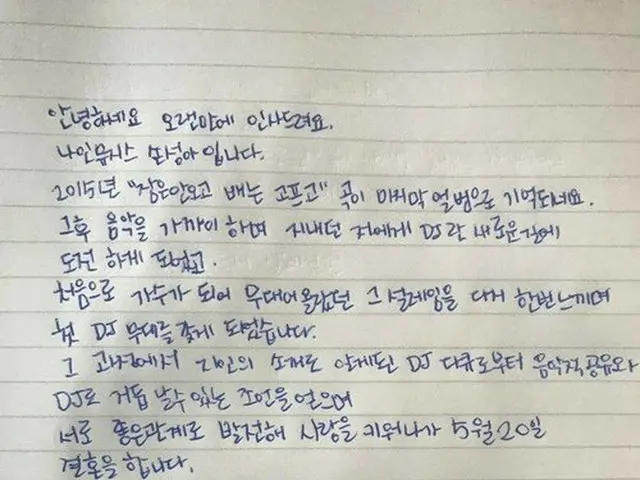 안녕하세요 오랜만에 인사드려요.
나인뮤지스 쏘성아입니다.
2015년 "잠은안오고 배는 고프고" 곡이 마지막 앨범으로 기억되네요.
그후 음악을 가까이 하며 지내던 저에게 DJ란 새로운길에
도전 하게 되었고.
처음으로 가수가 되어 무대에올랐던 그 설레임을 다시 한번느끼며
첫 DJ 무대를 갖게 되었습니다.
그 과정에서 지인의 소개로 알게된 DJ 다큐로부터 음악적공유와
DJ로 거듭 날수 있는 조언을 얻으며
서로 좋은관계로 발전해 사랑을 키워나가 5월20일
결혼을 합니다.